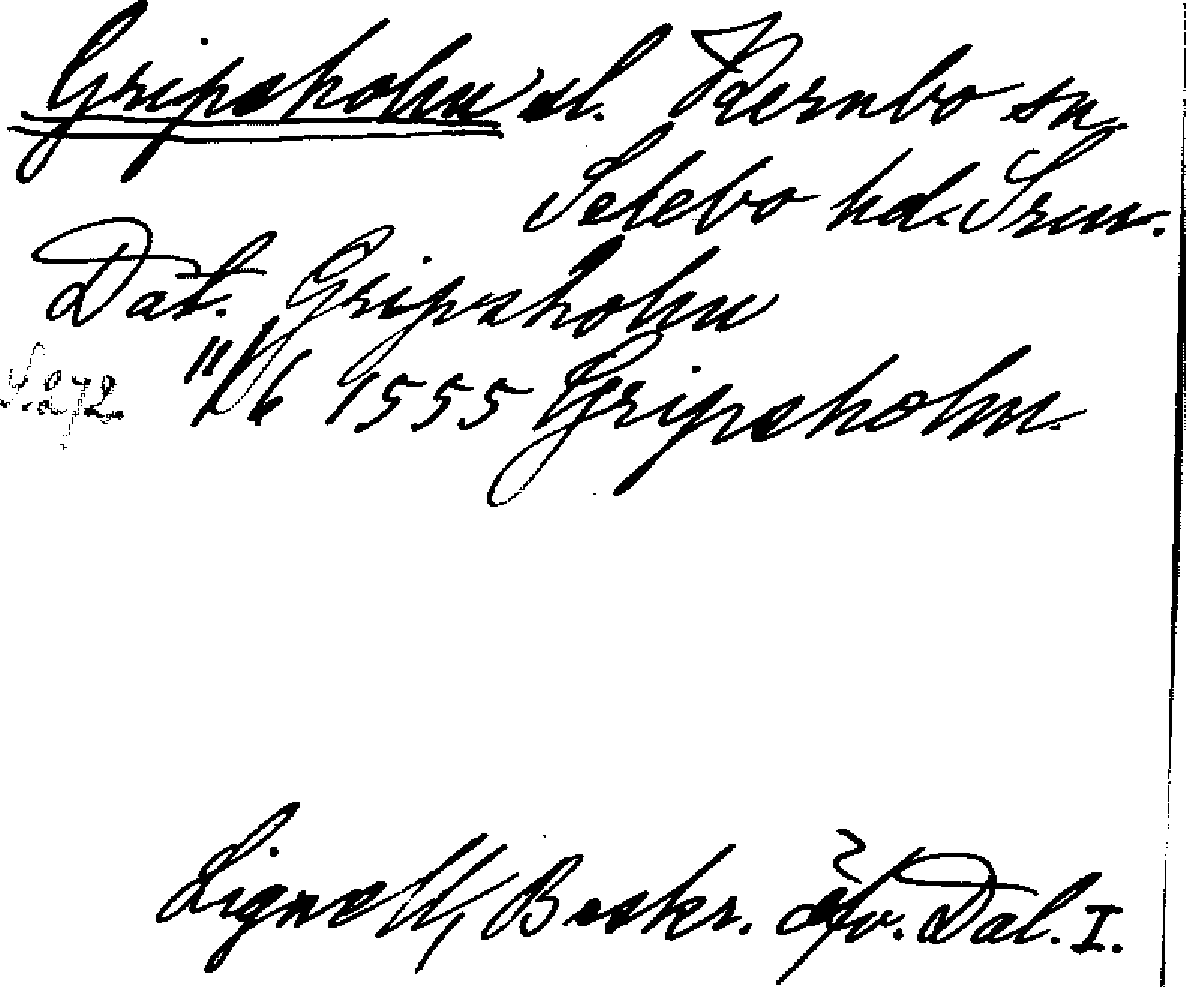 Gripsholm sl. Kernbo sn
Selebo hd. Srm.
Dat. Gripsholm
S. 272 11/6 1555 Gripsholm.
Lignell, Beskr. öfv. Dal. I.